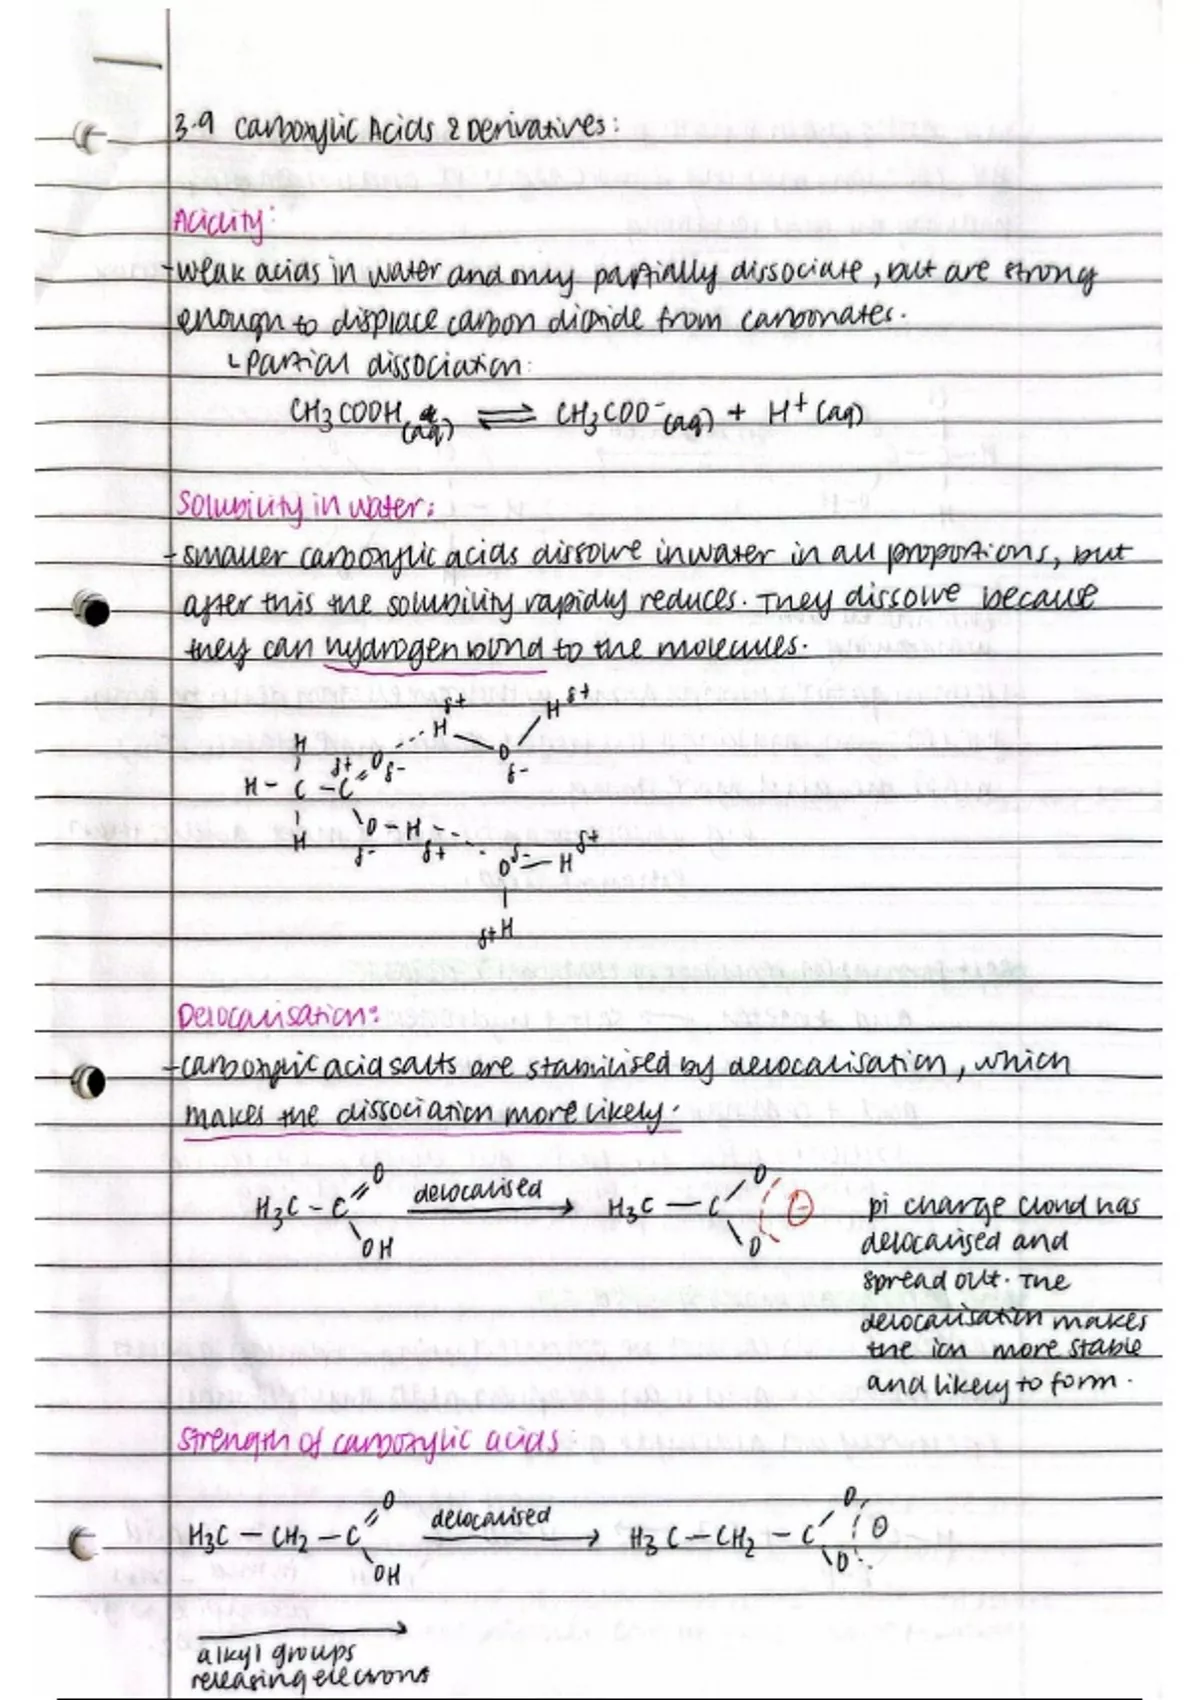 3.9 Carboxylic Acids & Derivatives:
Acidity:
- weak acids in water and only partially dissociate, but are strong
enough to displace carbon dioxide from carbonates.
↳ Partial dissociation:
CH3COOH (aq) ⇌ CH3COO⁻ (aq) + H⁺ (aq)
Solubility in water:
- smaller carboxylic acids dissolve in water in all proportions, but
after this the solubility rapidly reduces. They dissolve because
they can hydrogen bond to the molecules.
δ+ H δ+
H H
H δ+ O δ- O
H - C - C δ-
H O - H
δ- δ+ O δ- - H δ+
δ+ H
Delocalisation:
- carboxylic acid salts are stabilised by delocalisation, which
makes the dissociation more likely.
H3C - C =O OH delocalised → H3C - C O O ⊖
pi charge cloud has
delocalised and
spread out. The
delocalisation makes
the ion more stable
and likely to form.
Strength of carboxylic acids
H3C - CH2 - C =O OH delocalised → H3C - CH2 - C O O ⊖
alkyl groups
releasing electrons